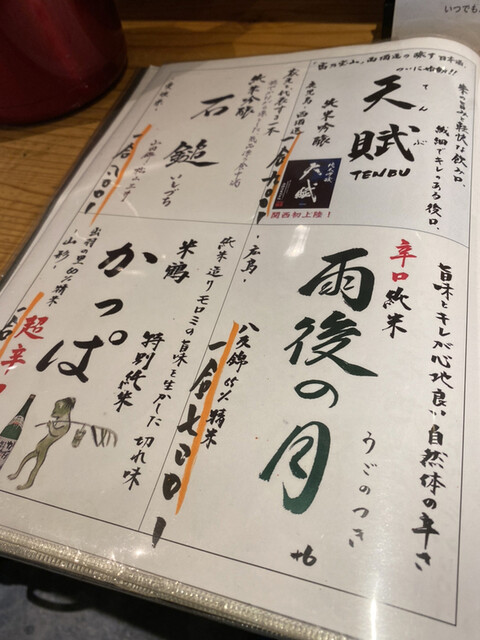 いつでも、
「富乃宝山」西酒造の醸す日本酒、
ついに始動!!
米の旨みと軽快な飲み口、
繊細でキレのある後口、
天賦
てんぶ
TENBU
純米吟醸
鹿児島・西酒造
天賦
関西初上陸!
石鎚
いしづち
純米吟醸
愛媛・
旨味とキレが心地良い自然体の辛さ
辛口純米
雨後の月
うごのつき
+6
広島・
八反錦65%精米
一合七〇〇!
かっぱ
米鶴
特別純米
純米造りモロミの旨味を生かした切れ味
出羽の里60%精米
・山形・
超辛口